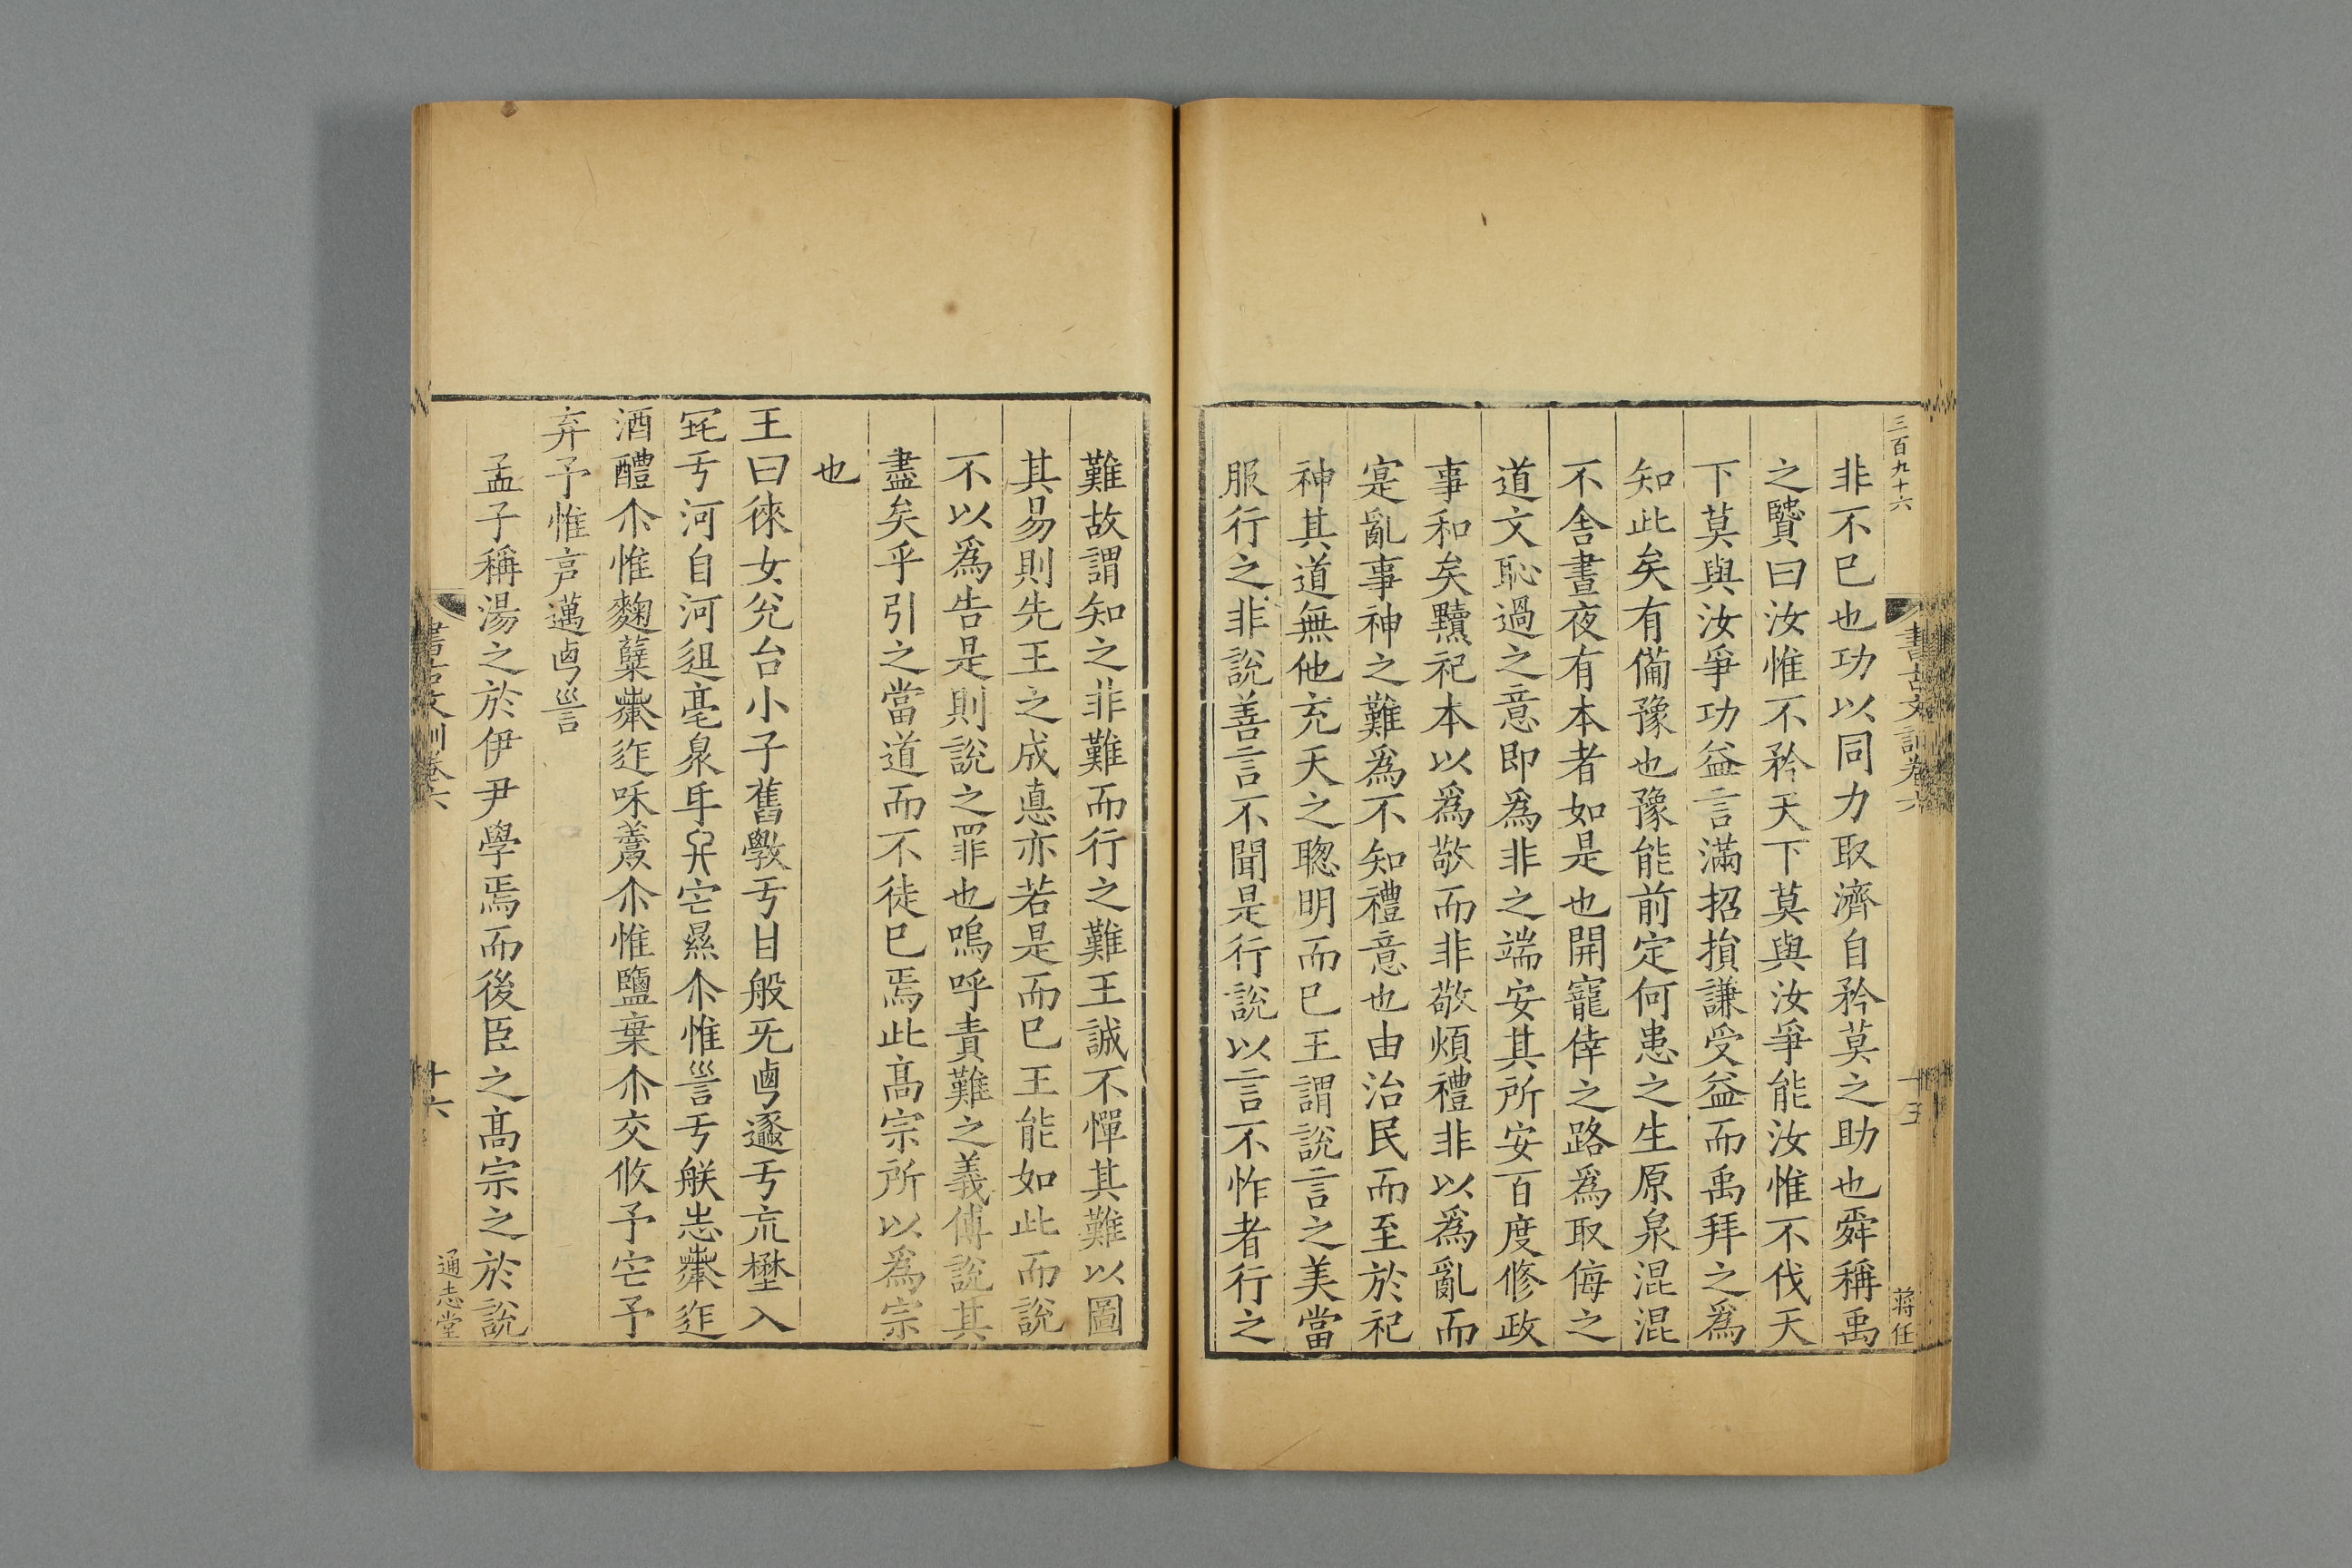 三百九十六
書古文訓卷六
十五
蔣任
非不已也功以同力取濟自矜莫之助也舜稱禹
之贒曰汝惟不矜天下莫與汝爭能汝惟不伐天
下莫與汝爭功益言滿招損謙受益而禹拜之爲
知此矣有備豫也豫能前定何患之生原泉混混
不舍晝夜有本者如是也開寵倖之路爲取侮之
道文恥過之意即爲非之端安其所安百度修政
事和矣黷祀本以爲敬而非敬煩禮非以爲亂而
寔亂事神之難爲不知禮意也由治民而至於祀
神其道無他充天之聰明而已王謂說言之美當
服行之非說善言不聞是行說以言不怍者行之
難故謂知之非難而行之難王誠不憚其難以圖
其易則先王之成悳亦若是而已王能如此而說
不以爲告是則說之罪也嗚呼責難之義傅說其
盡矣乎引之當道而不徒已焉此高宗所以爲宗
也
王曰徠女兊台小子舊斆亐甘般旡鹵遯亐巟壄入
宅亐河自河徂亳泉氒宂㝉㬎尒惟㘝亐朕志𦱤迮
酒醴尒惟麴糱𦱤迮咊羹尒惟鹽𣓀尒交攸予㝉予
弃予惟亯邁鹵㘝
孟子稱湯之於伊尹學焉而後臣之高宗之於說
書古文訓卷六
十六
通志堂